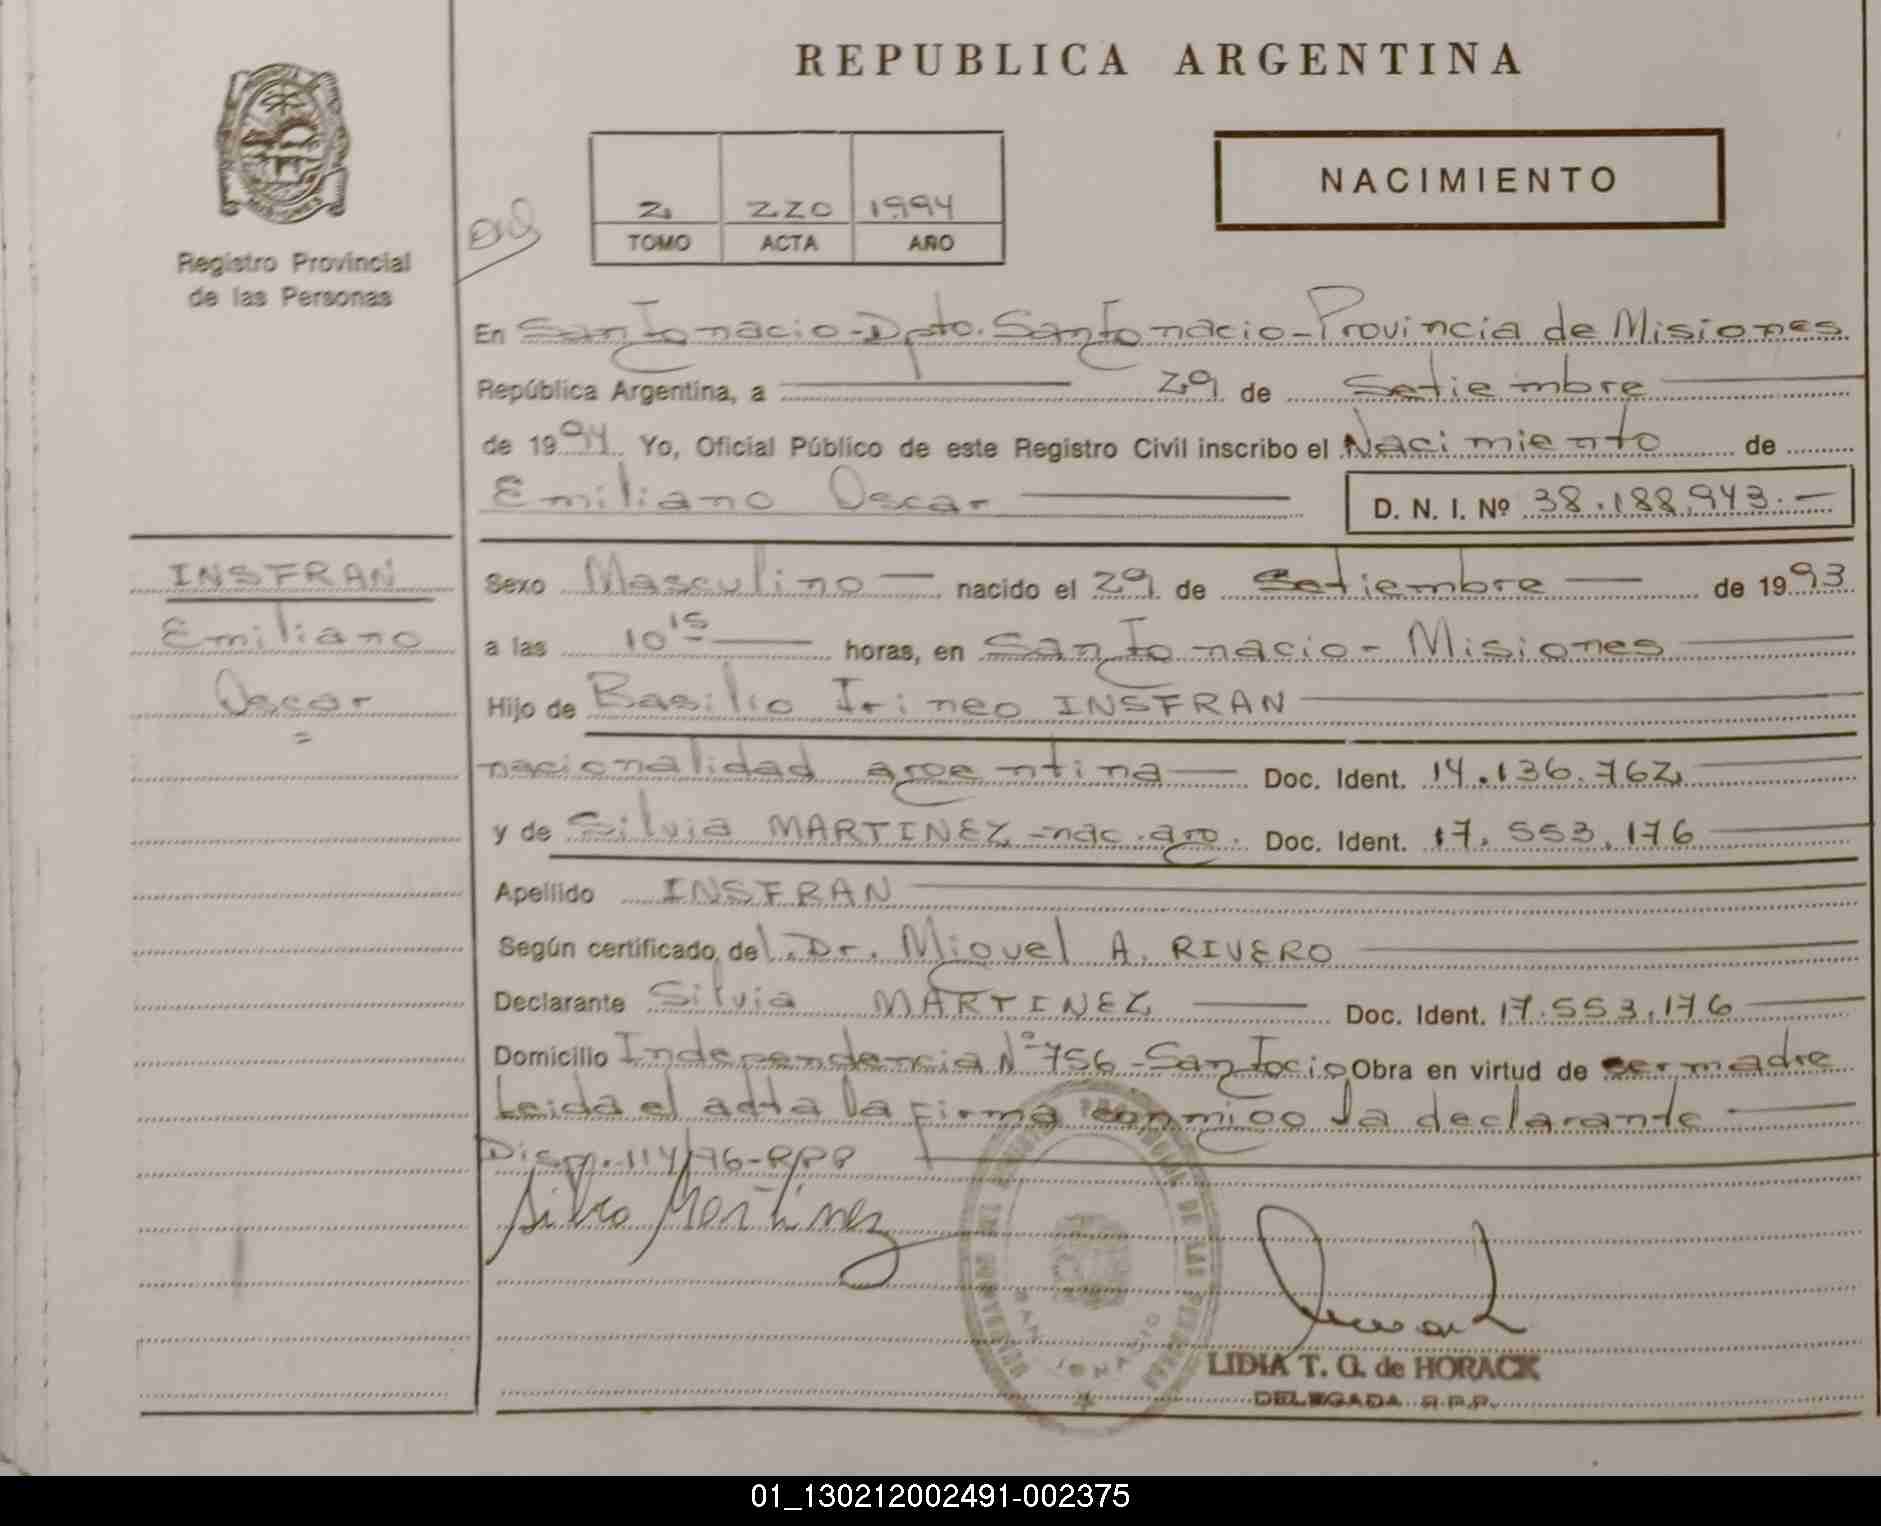 REPUBLICA ARGENTINA
NACIMIENTO
2 220 1994
TOMO ACTA AÑO
Registro Provincial
de las Personas
En San Ignacio - Dpto. San Ignacio - Provincia de Misiones
República Argentina, a 29 de Setiembre
de 1994 Yo, Oficial Público de este Registro Civil inscribo el Nacimiento de
Emiliano Oscar
D. N. I. Nº 38.188.943.-
INSFRAN
Emiliano
Oscar
Sexo Masculino nacido el 29 de Setiembre de 1993
a las 10 15 horas, en San Ignacio - Misiones
Hijo de Basilio Irineo INSFRAN
nacionalidad argentina Doc. Ident. 14.136.762
y de Silvia MARTINEZ - nac. arg. Doc. Ident. 17.553.176
Apellido INSFRAN
Según certificado de l. Dr. Miguel A. RIVERO
Declarante Silvia MARTINEZ Doc. Ident. 17.553.176
Domicilio Independencia Nº 756 - San Igcio Obra en virtud de ser madre
Leida el acta la firma conmigo la declarante
Disp. 114/76 - RPP
Silvia Martinez
REGISTRO PROVINCIAL DE LAS PERSONAS
SAN IGNACIO
LIDIA T. G. de HORACK
DELEGADA R.P.P.
01_130212002491-002375